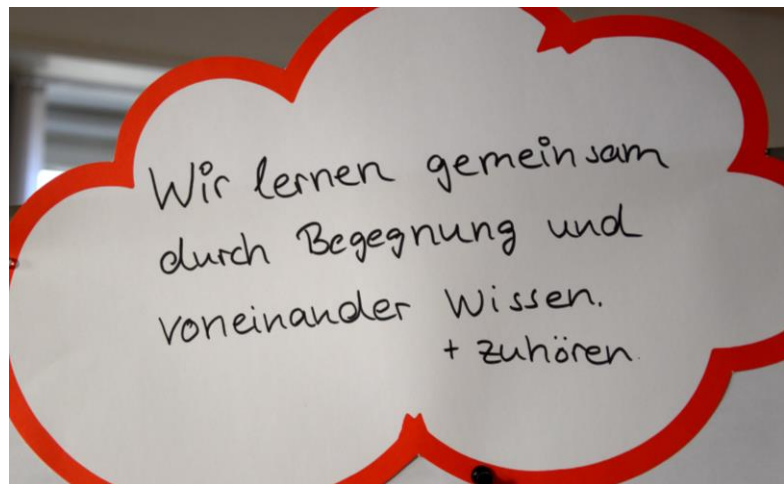 Wir lernen gemeinsam
durch Begegnung und
voneinander Wissen.
+ zuhören.